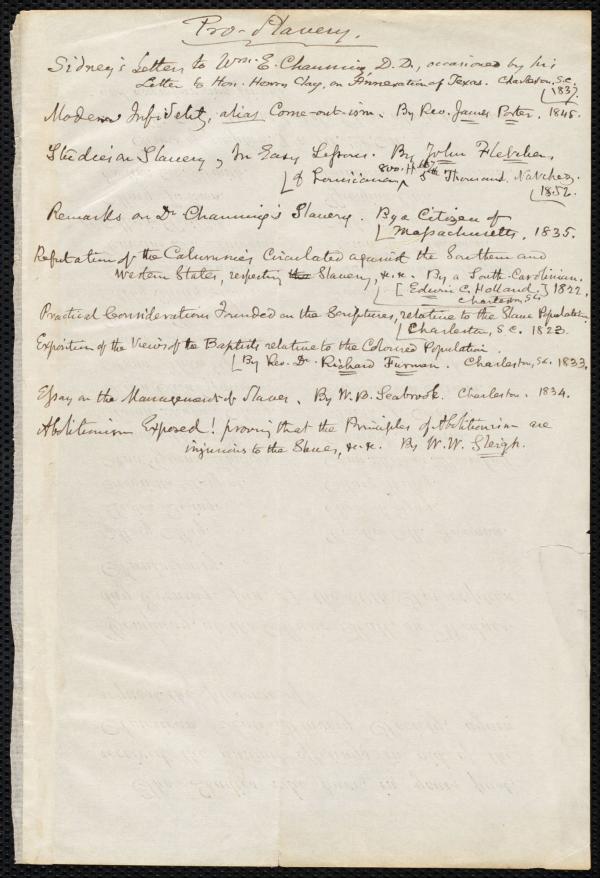 Pro-Slavery.
Sidney's Letters to Wm. E. Channing D.D., occasioned by his
Letter to Hon. Henry Clay, on Annexation of Texas. Charleston, S.C.
1837.
Modern Infidelity, alias Come-out-ism. By Rev. James Porter. 1845.
Studies on Slavery, In Easy Lessons. By John Fletcher,
of Louisiana. 8vo. 5th Thousand. Natchez.
1852.
Remarks on Dr Channing's Slavery. By a Citizen of
Massachusetts. 1835.
Refutation of the Calumnies Circulated against the Southern and
Western States, respecting the Slavery, &c. &c. By a South-Carolinian.
[Edwin C. Holland.] 1822.
Charleston, S.C.
Practical Considerations Founded on the Scriptures, relative to the Slave Population.
Charleston, S.C. 1823.
Exposition of the Views of the Baptists relative to the Coloured Population.
By Rev. Dr. Richard Furman. Charleston, S.C. 1833.
Essay on the Management of Slaves. By W. B. Seabrook. Charleston. 1834.
Abolitionism Exposed! proving that the Principles of Abolitionism are
injurious to the Slaves, &c. &c. By W. W. Sleigh.